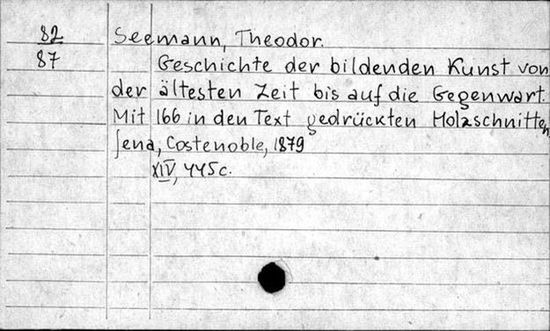 82
87
Seemann, Theodor.
Geschichte der bildenden Kunst von
der ältesten Zeit bis auf die Gegenwart.
Mit 166 in den Text gedrückten Holzschnitten
Jena, Costenoble, 1879
XIV, 445 c.